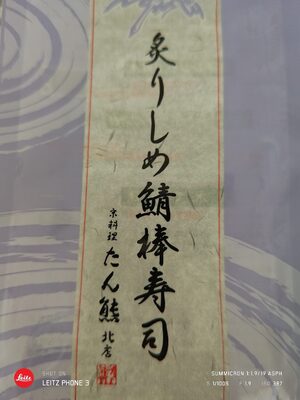 炙りしめ鯖棒寿司
京料理 たん熊 北店
Leitz
SHOT ON
LEITZ PHONE 3
SUMMICRON 1:1.9/19 ASPH
S 1/100S F1.9 ISO 387